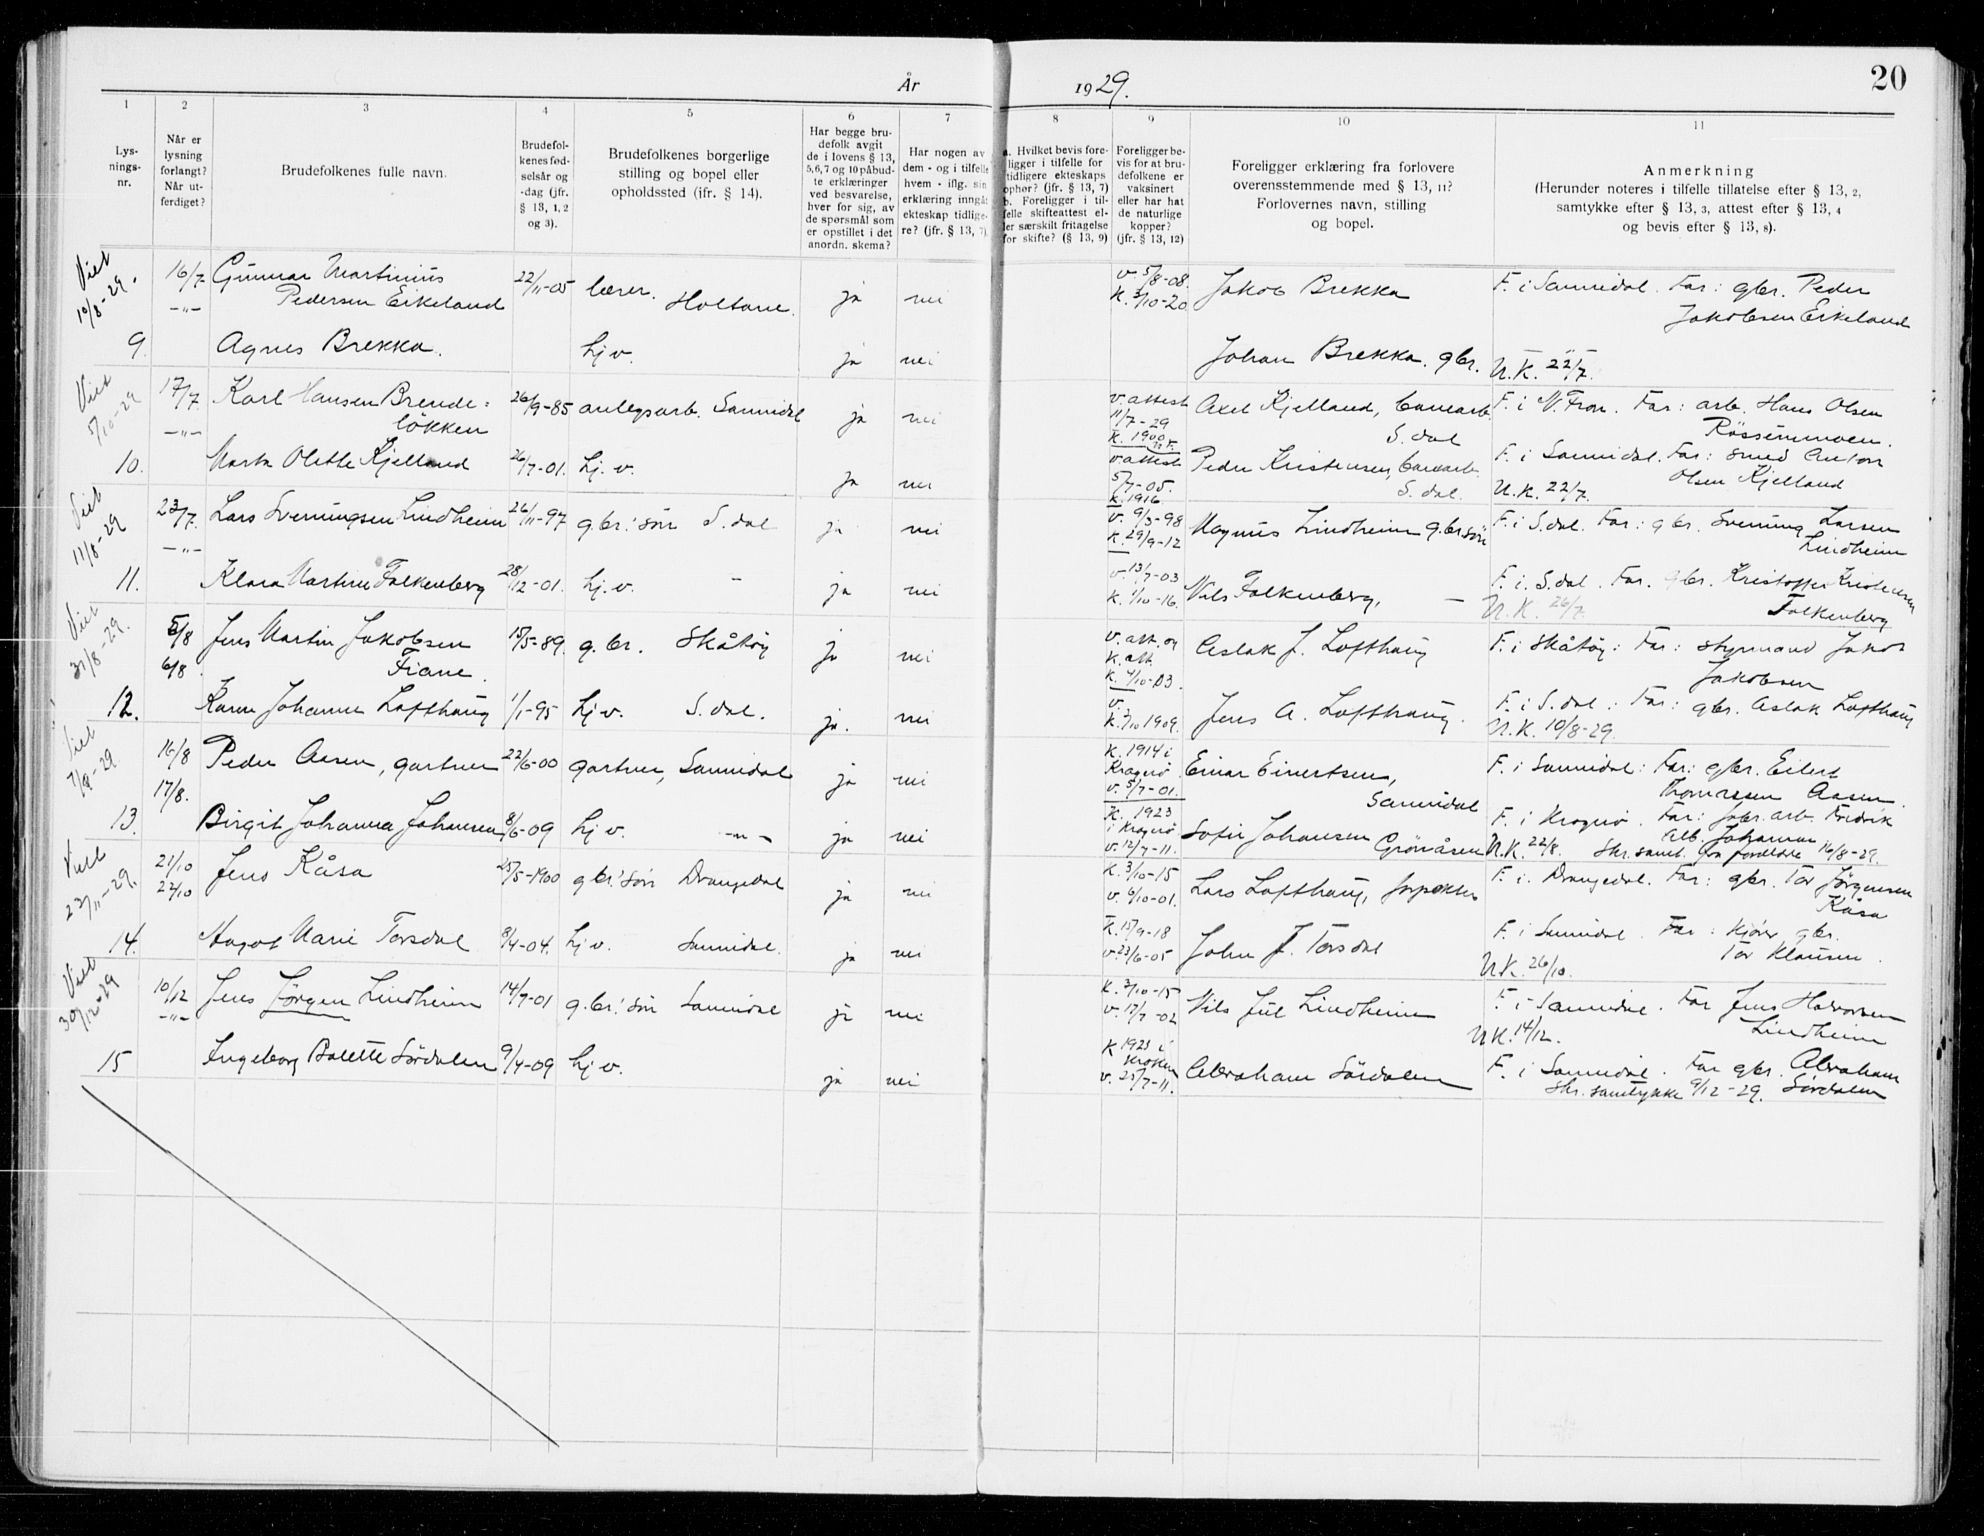 År 1929.
20
1 2 3 4 5 6 7 8 9 10 11
Lysningsnr.
Når er lysning forlangt? Når utferdiget?
Brudefolkenes fulle navn.
Brudefolkenes fødselsår og -dag (jfr. § 13, 1, 2 og 3).
Brudefolkenes borgerlige stilling og bopel eller opholdssted (jfr. § 14).
Har begge brudefolk avgit de i lovens § 13, 5,6,7 og 10 påbudte erklæringer ved besvarelse, hver for sig, av de spørsmål som er opstillet i det anordn. skema?
Har nogen av dem - og i tilfelle hvem - iflg. sin erklæring inngåt ekteskap tidligere? (jfr. § 13, 7)
a. Hvilket bevis foreligger i tilfelle for tidligere ekteskaps ophør? (jfr. § 13, 7) b. Foreligger i tilfelle skifteattest eller særskilt fritagelse for skifte? (§ 13, 9)
Foreligger bevis for at brudefolkene er vaksinert eller har hat de naturlige kopper? (jfr. § 13, 12)
Foreligger erklæring fra forlovere overensstemmende med § 13, 11? Forlovernes navn, stilling og bopel.
Anmerkning (Herunder noteres i tilfelle tillatelse efter § 13, 2, samtykke efter § 13, 3, attest efter § 13, 4 og bevis efter § 13, 8).
Viet 10/8-29. 16/7 Gunnar Martinius 22/11-05 lærer. v. 5/8-08. Jakob Brekka F. i Sannidal. Far: gbr. Peder
-"- Pedersen Eikeland Holtane. ja nei K. 3/10-20 Jakobsen Eikeland
9. Agnes Brekka. hjv. ja nei Johan Brekka. gbr. U.K. 22/7.
Viet 5/10-29 17/7 Karl Hansen Brende= 26/9-85 anlegsarb. Sannidal ja nei v. attest 11/7-29 Axel Kjelland, banearb. F. i N. Fron. Far: arb. Hans Olsen
-"- løkken K. 1900 S.dal
10. Marta Olette Kjelland 26/7-01. hj. v. ja nei v. attest 5/7-05. Peder Kristensen, banearb. F. i Sannidal. Far: smed Anton
K. 1916 S. dal. U.K. 22/7. Olsen Kjelland
Viet 11/8-29 23/7. Lars Sveinungsen Lindheim 26/11-97 gbr.'søn S.dal ja nei v. 9/3-98 Magnus Lindheim g.br.søn F. i S.dal. Far: gbr. Sveinung Larsen
-"- K. 29/9-12 Lindheim
11. Klara Martine Falkenberg 28/12-01. hj. v. - ja nei v. 13/7-03 Nils Falkenberg, - F. i S.dal. Far. gbr. Kristoffer Kristensen
K. 1/10-16. U.K. 26/7. Falkenberg
Viet 31/8-29. 5/8 Jens Martin Jakobsen 15/5-89. g.br. Skåtøy ja nei v. att. og K. att. Aslak J. Lofthaug F. i Skåtøy: Far: styrmand Jakob
6/8. Fiane. K. 4/10-03. Jakobsen
12. Karen Johanne Lofthaug 1/1-95 hjv. S.dal. ja. nei v. Jens A. Lofthaug. F. i S.dal: Far: gbr. Aslak Lofthaug
K. 3/10 1909. U.K. 10/8-29.
Viet 7/9-29 16/8 Peder Aasen, gartner 22/6-00 gartner, Sannidal ja nei K. 1914 i Kragerø Einar Eivertsen, F. i Sannidal: Far: gbr. Eilert
17/8. v. 5/7-01. Sannidal Thomassen Aasen.
13. Birgit Johanna Johansen 8/6-09 hjv. -"- ja nei K. 1923 i Kragerø Sofie Johansen F. i Kragerø. Far: jobr. arb. Fredrik
v. 12/7-11. Grønåsen U.K. 22/8. Skr. samt. fra foreldre 16/8-29.
Viet 22/11-29. 21/10 Jens Kåsa 25/5-1900 gbr.'søn Drangedal ja nei K. 3/10-15 Lars Lofthaug, F. i. Drangedal. Far: gbr. Tor Jørgensen
22/10 v. 6/10-01. Kåsa
14. Aagot Marie Torsdal 8/4-04. hjv. Sannidal. ja nei K. 15/9-18 John J. Torsdal F. i Sannidal. Far: gbr.
v. 23/6-05 U.K. 26/10. Tor Klausen.
Viet 30/12-29 10/12 Jens Jørgen Lindheim 14/7-01 g.br.'søn Sannidal ja nei K. 3/10-15 Nils Jul Lindheim F. i Sannidal. Far Jens Halvorsen
-"- v. 17/7-02 U.K. 14/12. Lindheim
15 Ingeborg Bolette Sørdalen 9/4-09 hjv. ja nei K 1923 i Kroken Abraham Sørdalen F. i Sannidal. Far gbr. Abraham
v. 25/7-11. Skr. samtykke 9/12-29. Sørdalen